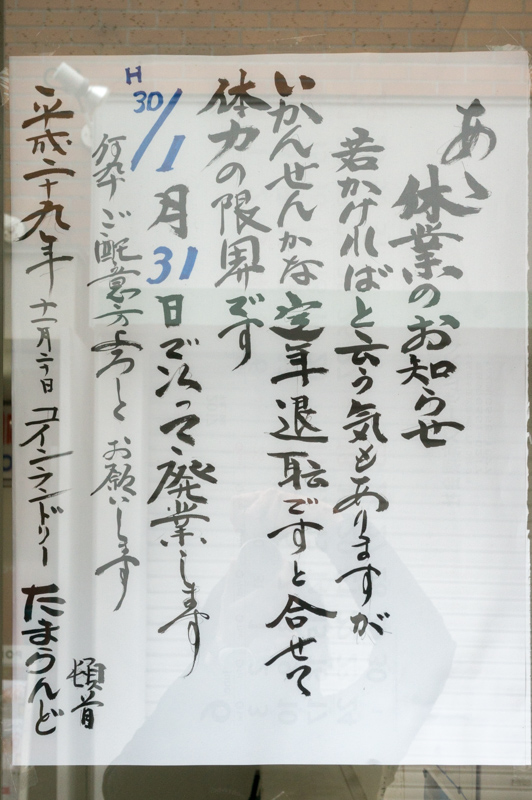 あゝ
休業のお知らせ
若かければと云う気もありますが
いかんせんかな定年退転ですと合せて
体力の限界です
H30/1月31日で以って廃業します
何卒ご配意方よろしくお願いします
頓首
平成二十九年十一月六日コインランドリーたまうんど